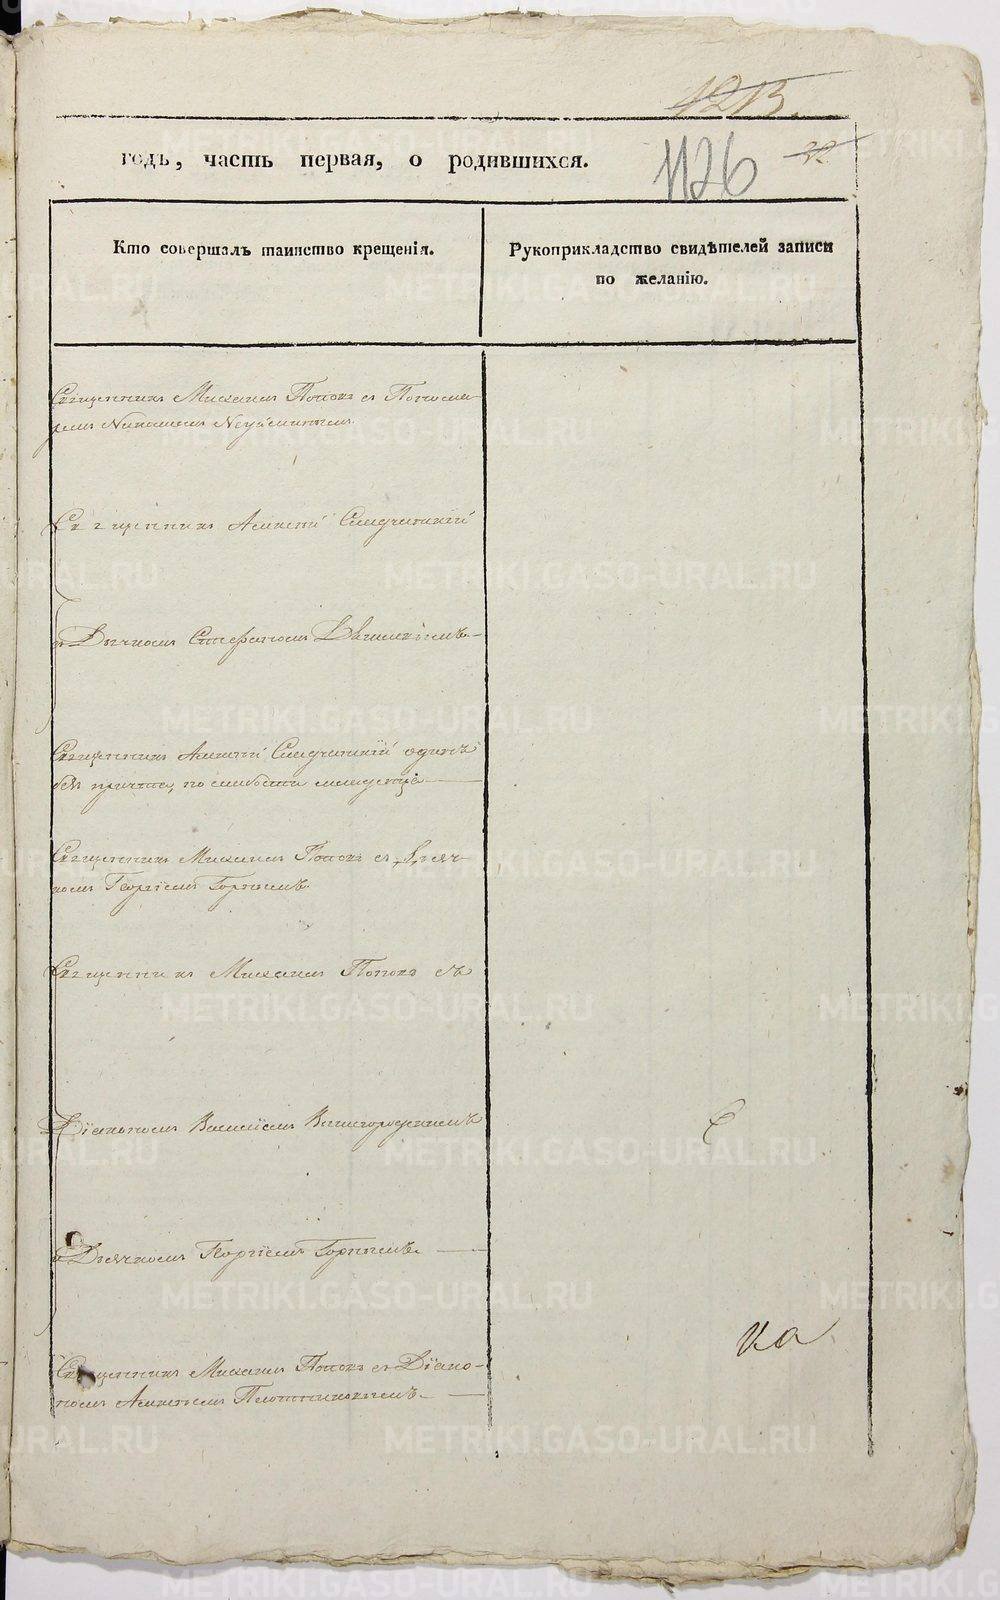 1213.
годъ, часть первая, о родившихся.
1126
32
Кто совершалъ таинство крещенія.
Рукоприкладство свидѣтелей записи
по желанію.
Священникъ Михаилъ Поповъ съ Понома-
ремъ
Священникъ Алексій
и Дьячкомъ Стефаномъ
Священникъ Алексій одинъ
безъ причта, по слабости младенца
Священникъ Михаилъ Поповъ съ Дьяч-
комъ Георгіемъ Горнымъ
Священникъ Михаилъ Поповъ съ
Діакономъ Василіемъ
и Дьячкомъ Георгіемъ Горнымъ.
на
Священникъ Михаилъ Поповъ съ Діако-
номъ Алексіемъ Плотниковымъ.
METRIKI.GASO-URAL.RU